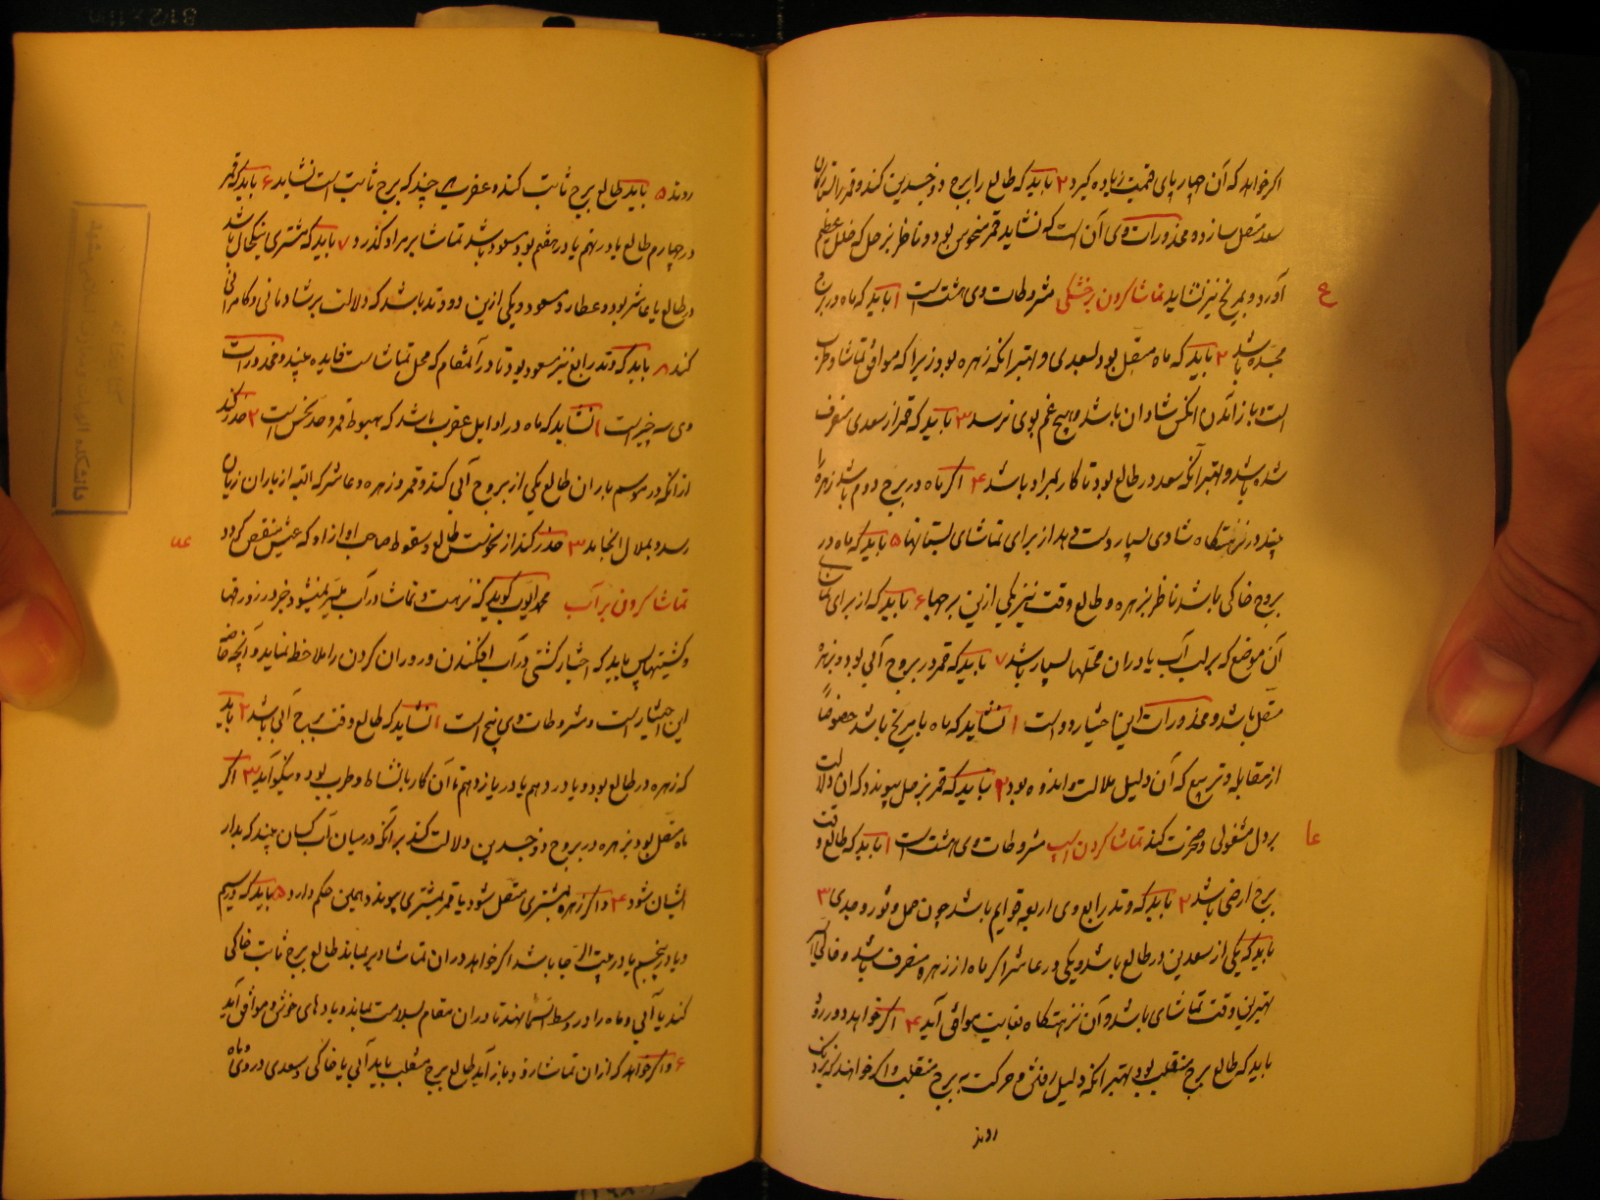 اگر خواهد که آن چهارپای قیمت زیاده گیرد ۲ باید که طالع را برج ذوجسدین کند و قمر را
سعد متصل سازد و محذورات وی آن است که نشاید قمر منحوس بود و ناظر بزحل که خلل عظیم
آورد و بمریخ نیز نشاید تماشا کردن بر خشکی مشروطات وی هشت است ۱ باید که ماه در برج
ع
باشد ۲ باید که ماه متصل بود بسعدی و بهتر آنکه زهره بود زیرا که موافق تماشا و طرب
است و باز آمدن آنکس شادان باشد و هیچ غم بوی نرسد ۳ باید که قمر از سعدی منصرف
شده باشد و بهتر آنکه سعد در طالع بود تا کار بمراد باشد ۴ اگر ماه در برج دوم باشد زهره را
بیند در نزهتگاه شادی بسیار دست دهد از برای تماشای بستانها ۵ باید که ماه در
بروج خاکی باشد ناظر بزهره و طالع وقت نیز یکی ازین برجها ۶ باید که از برای
آن موضع که بر لب آب یا دران محلها بسیار باشد ۷ باید که قمر در بروج آبی بود و بزهره
متصل باشد و محذورات این اختیار دو است ۱ نشاید که ماه با مریخ باشد خصوصاً
از مقابله و تربیع که آن دلیل ملالت و اندوه بود ۲ باید که قمر بزحل پیوندد که آن دلالت
بر دل مشغولی و ضجرت کند تماشا کردن اسپ مشروطات وی هشت است ۱ باید که طالع وقت
عا
برج ارضی باشد ۲ باید که وتد رابع وی اربعه قوایم باشد چون حمل و ثور و جدی ۳
باید که یکی از سعدین در طالع باشد و یکی در عاشر اگر ماه از زهره منصرف باشد و
بهترین وقت تماشای باشد و آن نزهتگاه بغایت موافق آید ۴ اگر خواهد دور رود
باید که طالع برج منقلب بود بهتر آنکه دلیل رفتن و حرکت به برج منقلب و اگر خواهند که نزدیک
روند
روند ۵ باید طالع برج ثابت کند و عقرب هر چند که برج ثابت است نشاید ۶ باید که قمر
در چهارم طالع یا در نهم یا در هفتم بود مسعود باشد تماشا بر مراد گذرد ۷ باید که مشتری نیکحال باشد
در طالع یا عاشر بود و عطارد مسعود و یکی ازین دو وتد باشد که دلالت بر شادمانی و کامرانی
کند ۸ باید که وتد رابع نیز مسعود بود تا در آن مقام که محل تماشا ست فایده بیند و محذورات
وی سه چیز است ۱ نشاید که ماه در اوایل عقرب باشد که هبوط قمر و حد نحس است ۲ حذر کند
از آنکه در موسم باران طالع یکی از بروج آبی کند و قمر و زهره و عاشر که البته از باران زیان
رسد و بملال انجامد ۳ حذر کند از نحوست طالع و سقوط صاحب او از او که عیش منقص گردد
تماشا کردن بر آب محمد ایوب گوید که نزهت و تماشا در آب میسر نمیشود جز در زورقها
عب
و کشتیها پس باید که اختیار کشتی در آب افکندن و روان کردن را ملاحظه نماید و آنچه خاصه
این اختیار است و مشروطات وی پنج است ۱ نشاید که طالع وقت برج آبی باشد ۲ باید
که زهره در طالع بود و یا در دهم یا در یازدهم تا آن کار با نشاط و طرب بود و نیکو آید ۳ اگر
ماه متصل بود بزهره در بروج ذوجسدین دلالت کند بر آنکه در میان آب کسان بیند که بدیدار
ایشان شود ۴ و اگر زهره بمشتری متصل شود یا قمر بمشتری پیوندد همین حکم دارد ۵ باید که در سیم
و یا در پنجم یا در بیت الرجا باشد اگر خواهد در آن تماشا دیر بماند طالع برج ثابت خاکی
کند یا آبی و ماه را در وسط السما نهند تا در آن مقام بسلامت بماند و بادهای خوش و موافق آید
۶ و اگر خواهد که از آن تماشا زود باز آید طالع برج منقلب باید آبی یا خاکی و سعدی در وی و ماه